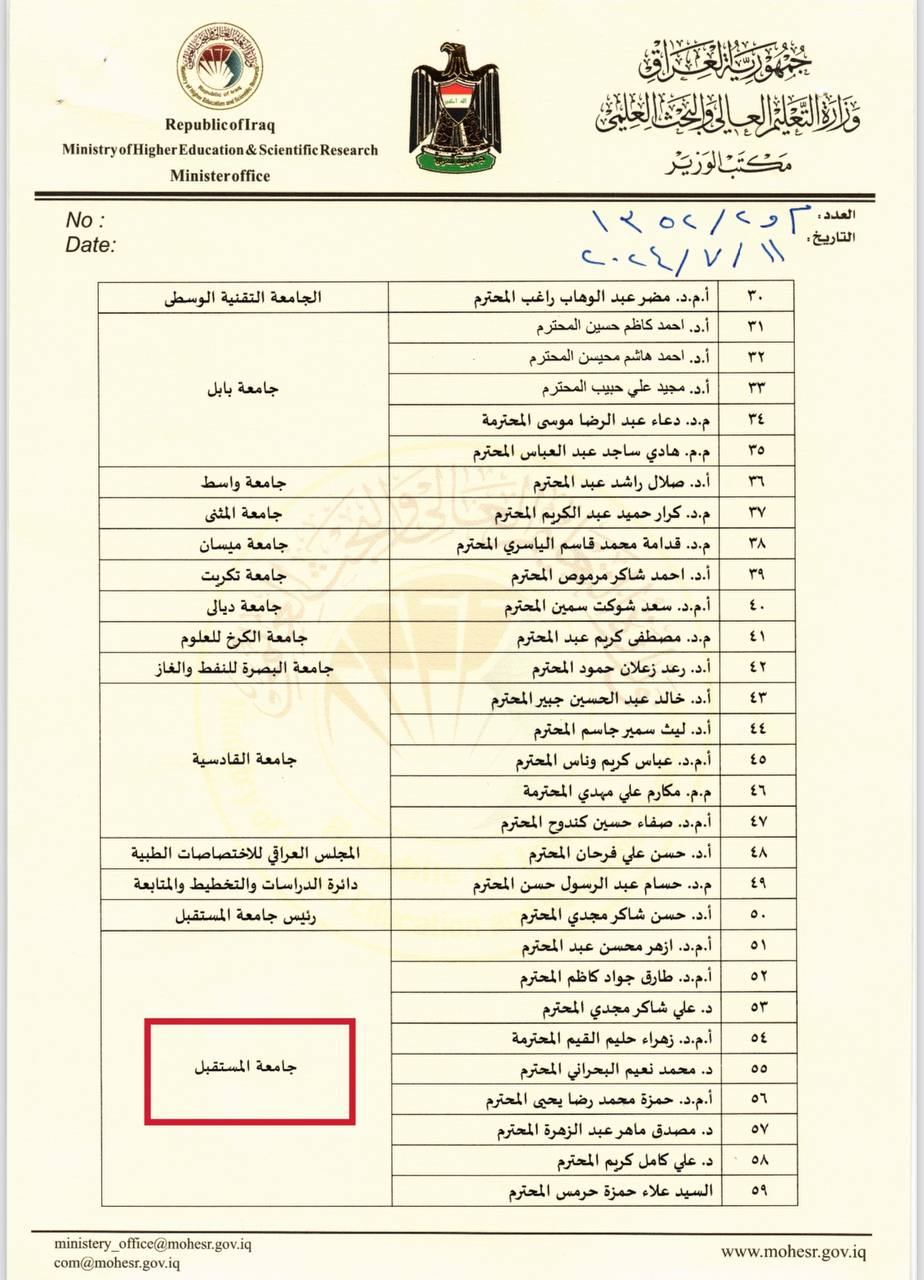 Republic of Iraq
Ministry of Higher Education & Scientific Research
Minister office
جمهورية العراق
وزارة التعليم العالي والبحث العلمي
مكتب الوزير
No :
Date:
العدد: م و٢/ ١٣٥٢
التاريخ: ١١/ ٧/ ٢٠٢٤
٣٠ أ.م.د. مضر عبد الوهاب راغب المحترم الجامعة التقنية الوسطى
٣١ أ.د. احمد كاظم حسين المحترم
٣٢ أ.د. احمد هاشم محيسن المحترم
٣٣ أ.د. مجيد علي حبيب المحترم جامعة بابل
٣٤ م.د. دعاء عبد الرضا موسى المحترمة
٣٥ م.م. هادي ساجد عبد العباس المحترم
٣٦ أ.د. صلال راشد عبد المحترم جامعة واسط
٣٧ م.د. كرار حميد عبد الكريم المحترم جامعة المثنى
٣٨ م.د. قدامة محمد قاسم الياسري المحترم جامعة ميسان
٣٩ أ.د. احمد شاكر مرموص المحترم جامعة تكريت
٤٠ أ.م.د. سعد شوكت سمين المحترم جامعة ديالى
٤١ م.د. مصطفى كريم عبد المحترم جامعة الكرخ للعلوم
٤٢ أ.د. رعد زعلان حمود المحترم جامعة البصرة للنفط والغاز
٤٣ أ.د. خالد عبد الحسين جبير المحترم
٤٤ أ.د. ليث سمير جاسم المحترم
٤٥ أ.م.د. عباس كريم وناس المحترم جامعة القادسية
٤٦ م.م. مكارم علي مهدي المحترمة
٤٧ أ.م.د. صفاء حسين كندوح المحترم
٤٨ أ.د. حسن علي فرحان المحترم المجلس العراقي للاختصاصات الطبية
٤٩ م.د. حسام عبد الرسول حسن المحترم دائرة الدراسات والتخطيط والمتابعة
٥٠ أ.د. حسن شاكر مجدي المحترم رئيس جامعة المستقبل
٥١ أ.م.د. ازهر محسن عبد المحترم
٥٢ أ.م.د. طارق جواد كاظم المحترم
٥٣ د. علي شاكر مجدي المحترم
٥٤ أ.م.د. زهراء حليم القيم المحترمة
٥٥ د. محمد نعيم البحراني المحترم جامعة المستقبل
٥٦ أ.م.د. حمزة محمد رضا يحيى المحترم
٥٧ د. مصدق ماهر عبد الزهرة المحترم
٥٨ د. علي كامل كريم المحترم
٥٩ السيد علاء حمزة حرمس المحترم
ministery_office@mohesr.gov.iq
com@mohesr.gov.iq
www.mohesr.gov.iq